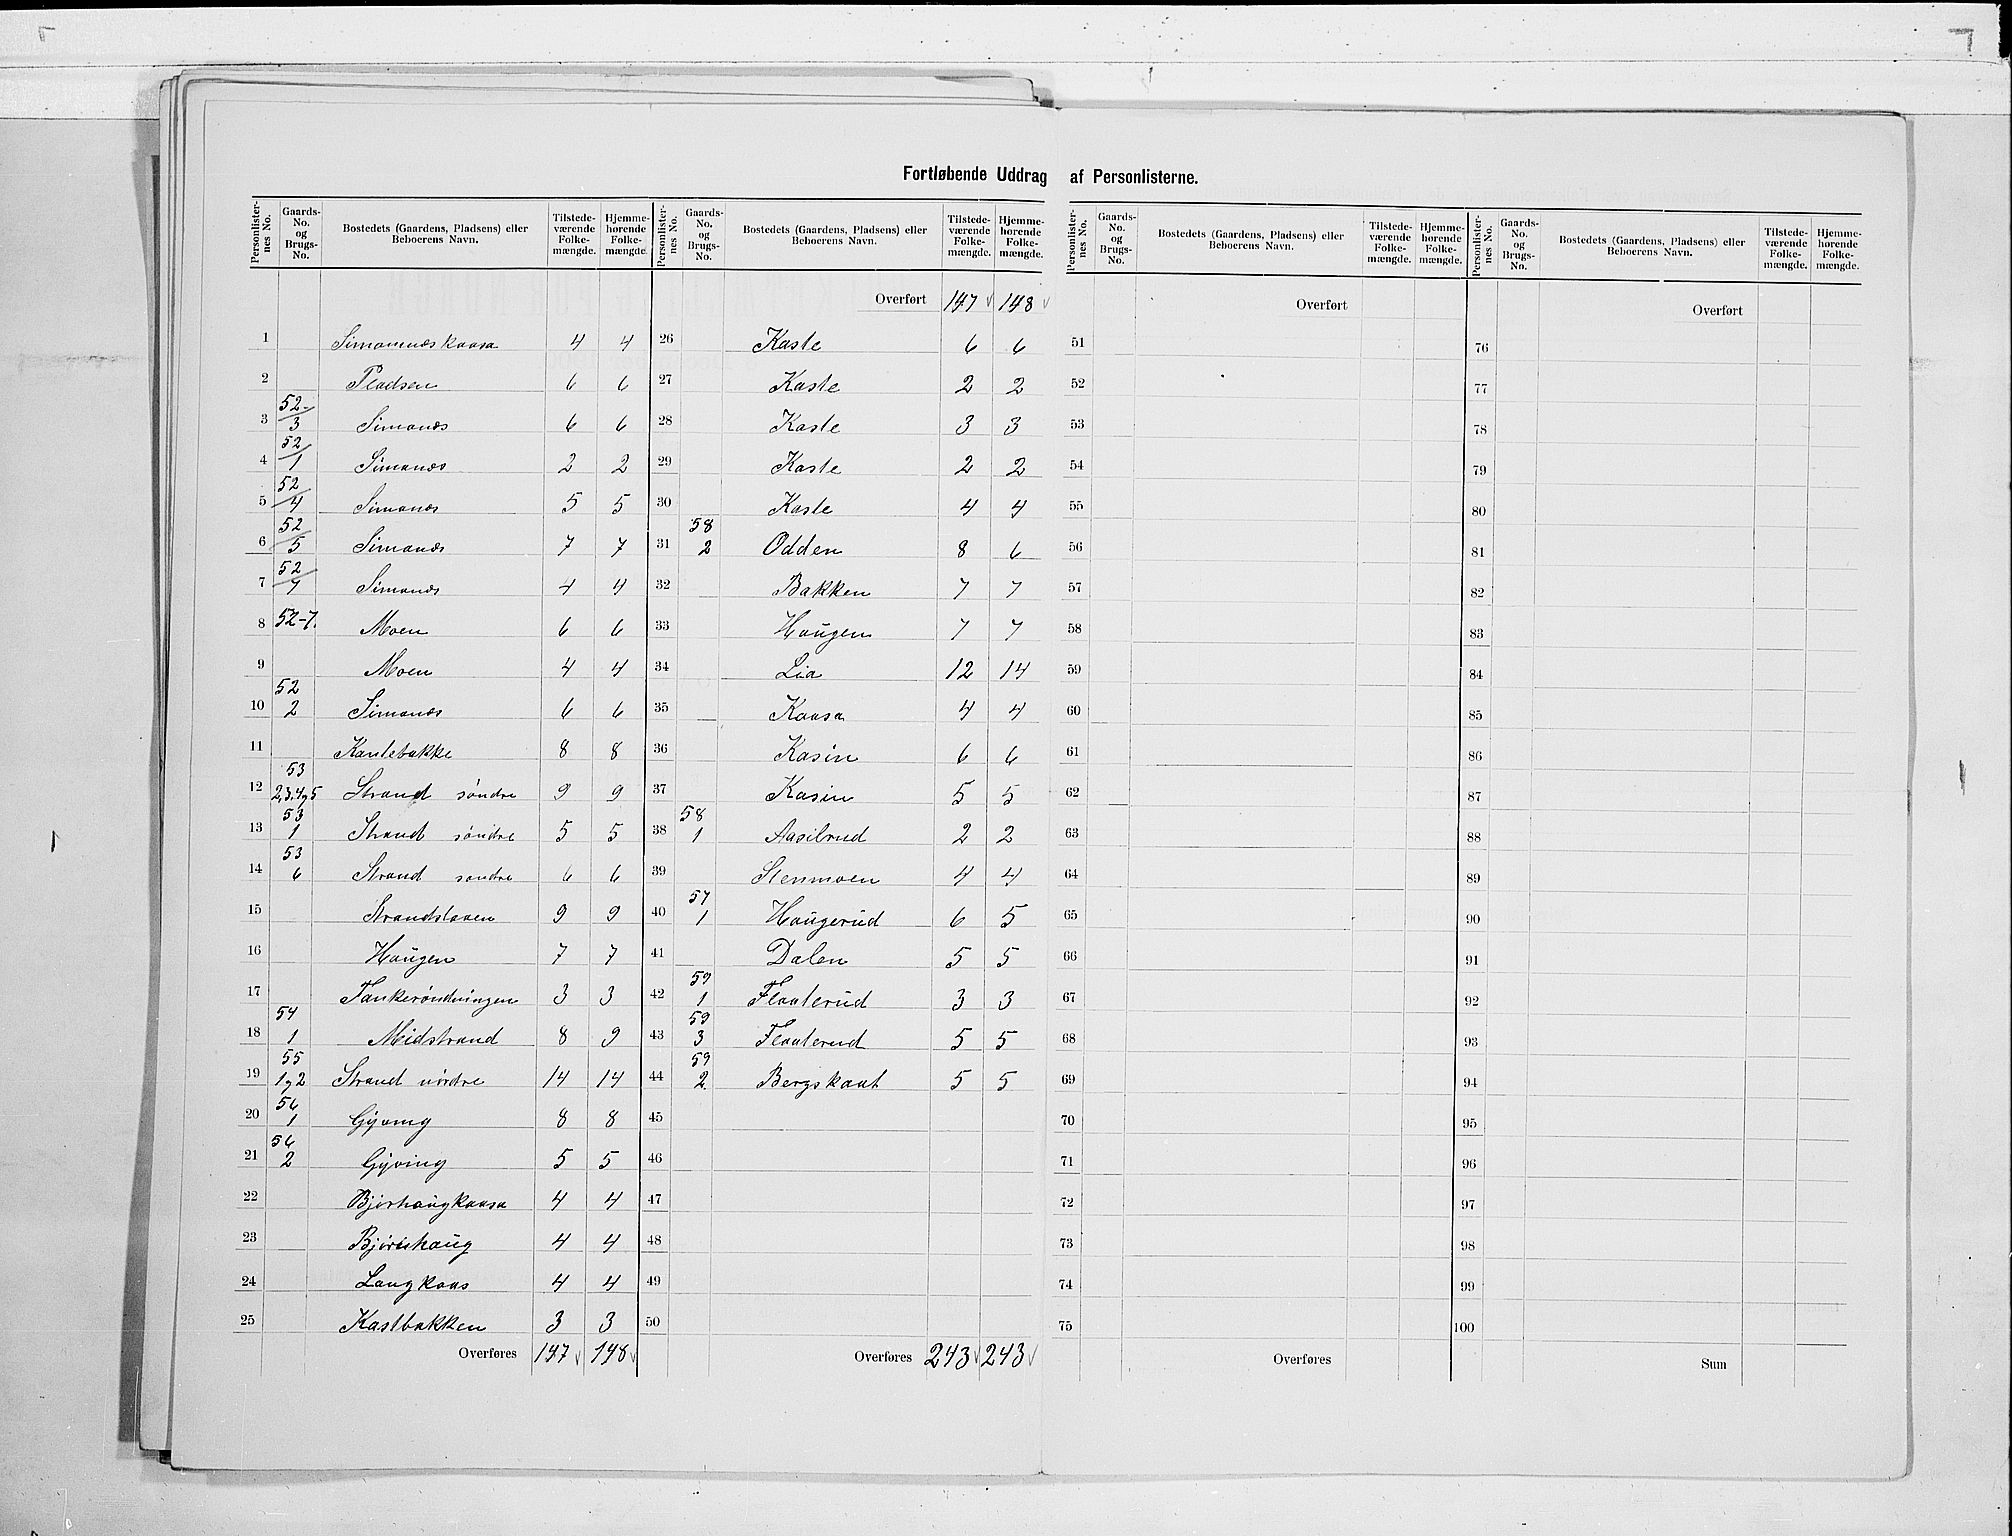 Fortløbende Uddrag af Personlisterne.
Personlisternes No. | Gaards-No. og Brugs-No. | Bostedets (Gaardens, Pladsens) eller Beboerens Navn. | Tilstedeværende Folkemængde. | Hjemmehørende Folkemængde.
1 Simonnæskaasa 4 4
2 Pladsen 6 6
3 52-/3 Simonæs 6 6
4 52/1 Simonæs 2 2
5 52/4 Simonæs 5 5
6 52/5 Simonæs 7 7
7 52/7 Simonæs 4 4
8 52-7. Moen 6 6
9 Moen 4 4
10 52 2 Simonæs 6 6
11 Kantebakke 8 8
12 53 2,3,4,5 Strand søndre 9 9
13 53 1 Strand søndre 5 5
14 53 6 Strand søndre 6 6
15 Strandstøen 9 9
16 Haugen 7 7
17 Tankerøndningen 3 3
18 54 1 Midstrand 8 9
19 55 1,2 Strand nordre 14 14
20 56 1 Gjøving 8 8
21 56 2 Gjøving 5 5
22 Bjørhaugkaasa 4 4
23 Bjørnhaug 4 4
24 Langkaas 4 4
25 Kastbakken 3 3
Overføres 147 148
Personlisternes No. | Gaards-No. og Brugs-No. | Bostedets (Gaardens, Pladsens) eller Beboerens Navn. | Tilstedeværende Folkemængde. | Hjemmehørende Folkemængde.
Overført 147 148
26 Kaste 6 6
27 Kaste 2 2
28 Kaste 3 3
29 Kaste 2 2
30 Kaste 4 4
31 58 2 Odden 8 6
32 Bakken 7 7
33 Haugen 7 7
34 Lia 12 14
35 Kaasa 4 4
36 Kasin 6 6
37 Kasin 5 5
38 58 1 Aasilrud 2 2
39 Stenmoen 4 4
40 57 1 Haugerud 6 5
41 Dalen 5 5
42 59 1 Flaaterud 3 3
43 59 3 Flaaterud 5 5
44 59 2 Bergskaat 5 5
45
46
47
48
49
50
Overføres 243 243
Personlisternes No. | Gaards-No. og Brugs-No. | Bostedets (Gaardens, Pladsens) eller Beboerens Navn. | Tilstedeværende Folkemængde. | Hjemmehørende Folkemængde.
Overført
51
52
53
54
55
56
57
58
59
60
61
62
63
64
65
66
67
68
69
70
71
72
73
74
75
Overføres
Personlisternes No. | Gaards-No. og Brugs-No. | Bostedets (Gaardens, Pladsens) eller Beboerens Navn. | Tilstedeværende Folkemængde. | Hjemmehørende Folkemængde.
Overført
76
77
78
79
80
81
82
83
84
85
86
87
88
89
90
91
92
93
94
95
96
97
98
99
100
Sum